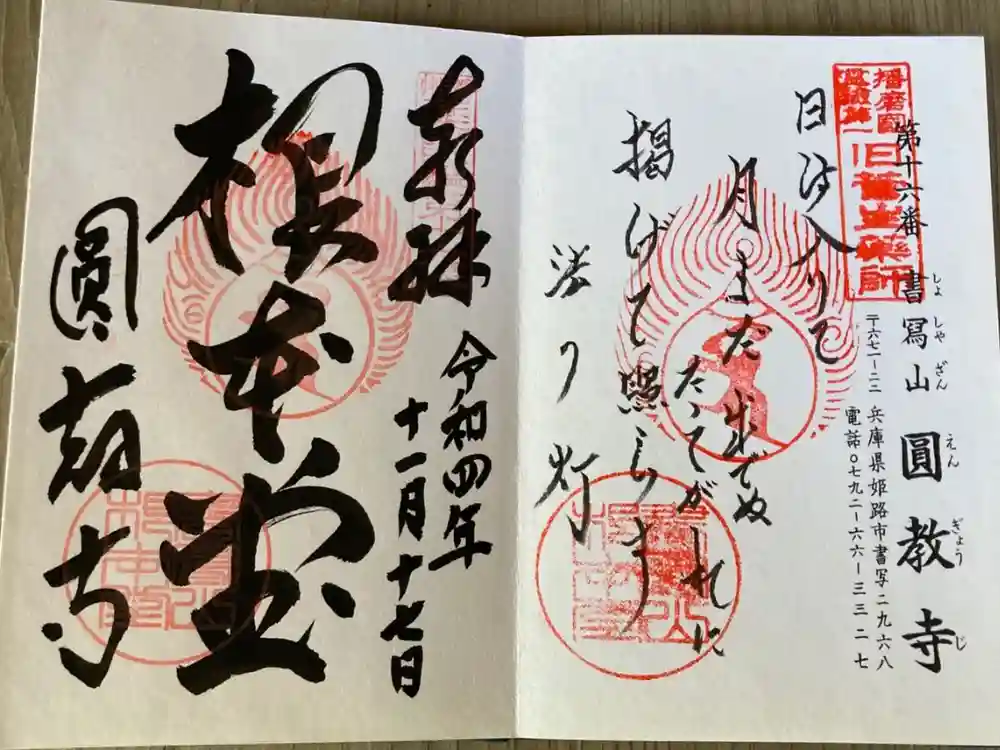 播磨國
第十六番 書寫山 圓教寺
しょ しゃ ざん えん ぎょう じ
〒六七一-二二 兵庫県姫路市書写二九六八
電話〇七九二-六六-三三二七
日は入りて
月まだ出でぬ
たそがれに
掲げて照らす
法の灯
奉拝
令和四年
十一月十七日
根本堂
圓教寺